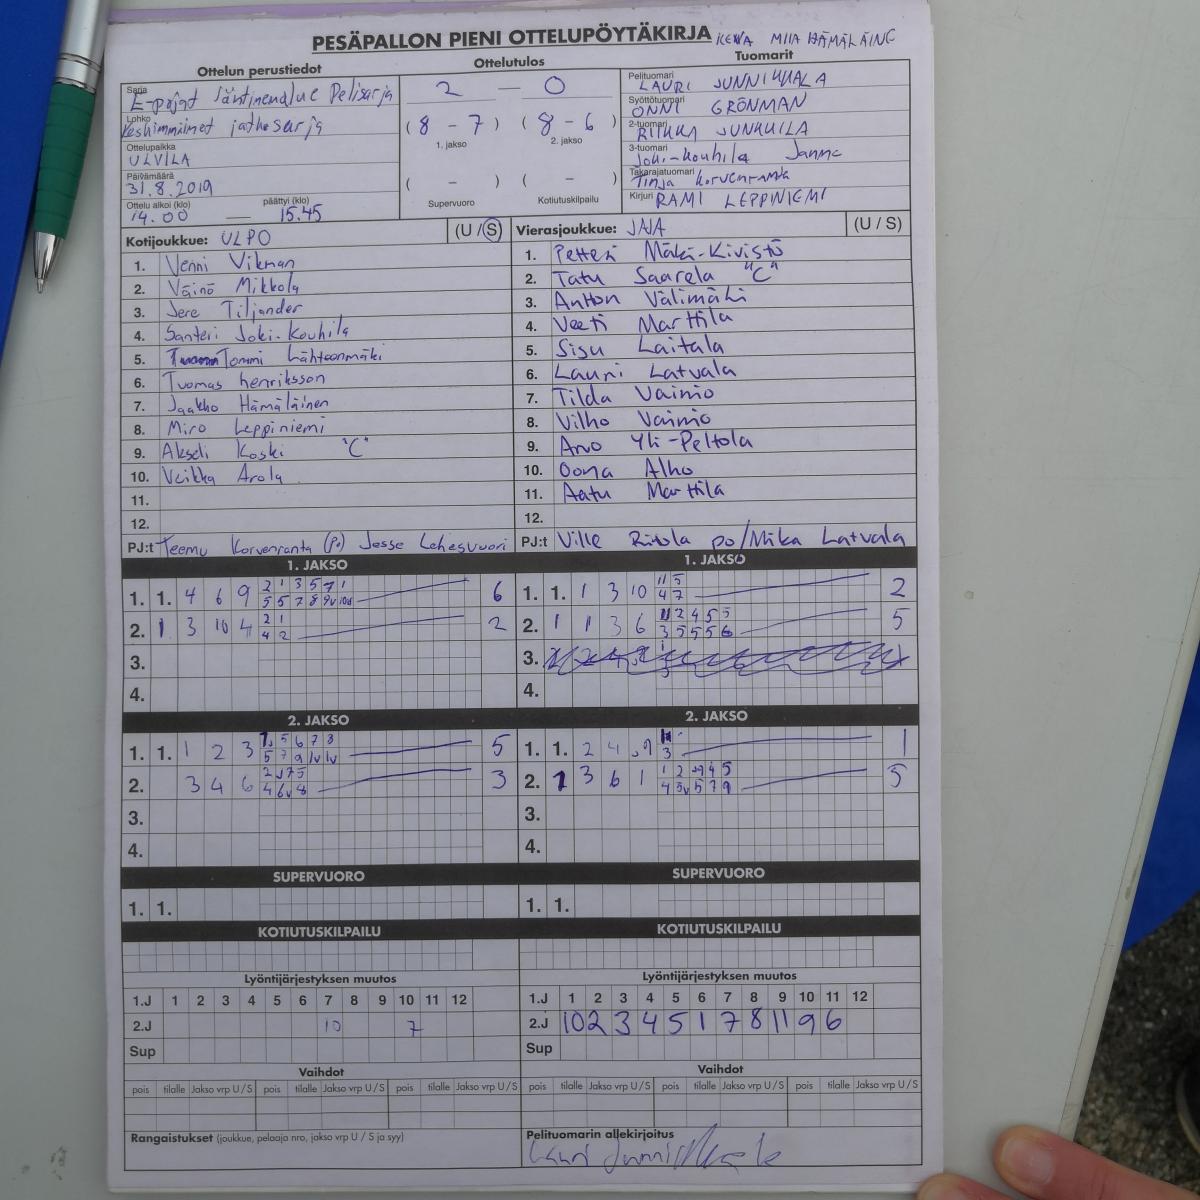 PESÄPALLON PIENI OTTELUPÖYTÄKIRJA KENA MIIA HÄMÄLÄINE
Ottelun perustiedot
Sarja
E-pojat Läntinenalue Pelisarja
Lohko
Keskimmäinet jatkosarja
Ottelupaikka
ULVILA
Päivämäärä
31.8.2019
Ottelu alkoi (klo) päättyi (klo)
14.00 — 15.45
Ottelutulos
2 — 0
( 8 - 7 ) ( 8 - 6 )
1. jakso 2. jakso
( - ) ( - )
Supervuoro Kotiutuskilpailu
Tuomarit
Pelituomari
LAURI JUNNIKKALA
Syöttötuomari
ONNI GRÖNMAN
2-tuomari
RIIKKA JUNKKILA
3-tuomari
Joki-Kouhila Janne
Takarajatuomari
Tinja Korvenranta
Kirjuri RAMI LEPPINIEMI
Kotijoukkue: ULPO (U / S)
1. Venni Vikman
2. Väinö Mikkola
3. Jere Tiljander
4. Santeri Joki-Kouhila
5. Tommi Lähteenmäki
6. Tuomas Henriksson
7. Jaakko Hämäläinen
8. Miro Leppiniemi
9. Akseli Koski "C"
10. Veikka Arola
11.
12.
PJ:t Teemu Korvenranta (PJ) Jesse Lehesvuori
Vierasjoukkue: JAJA (U / S)
1. Petteri Mäki-Kivistö
2. Tatu Saarela "C"
3. Antton Välimäki
4. Veeti Marttila
5. Sisu Laitala
6. Lauri Latvala
7. Tilda Vainio
8. Vilho Vainio
9. Arvo Yli-Peltola
10. Oona Alho
11. Aatu Marttila
12.
PJ:t Ville Ritola PJ/Mika Latvala
1. JAKSO
1. 1. 4 6 9 2 1 3 5 7 1 6
5 5 7 8 9v 10v
2. 1 3 10 4 2 1 2
4 2
3.
4.
1. JAKSO
1. 1. 1 3 10 11 5 2
4 7
2. 1 1 3 6 11 2 4 5 5 5
3 5 5 5 6
3.
4.
2. JAKSO
1. 1. 1 2 3 5 6 7 8 5
5 7 9 1v 1v
2. 3 4 6 2 v7 5 3
4 6v 8
3.
4.
2. JAKSO
1. 1. 2 4 9 1
3
2. 1 3 6 1 1 2 4 5 5
4 5v 5 7 9
3.
4.
SUPERVUORO
1. 1.
SUPERVUORO
1. 1.
KOTIUTUSKILPAILU
KOTIUTUSKILPAILU
Lyöntijärjestyksen muutos
1.J 1 2 3 4 5 6 7 8 9 10 11 12
2.J 10 7
Sup
Lyöntijärjestyksen muutos
1.J 1 2 3 4 5 6 7 8 9 10 11 12
2.J 10 2 3 4 5 1 7 8 11 9 6
Sup
Vaihdot
pois tilalle Jakso vrp U / S pois tilalle Jakso vrp U / S
Vaihdot
pois tilalle Jakso vrp U / S pois tilalle Jakso vrp U / S
Rangaistukset (joukkue, pelaaja nro, jakso vrp U / S ja syy)
Pelituomarin allekirjoitus
Lauri Junnikkala